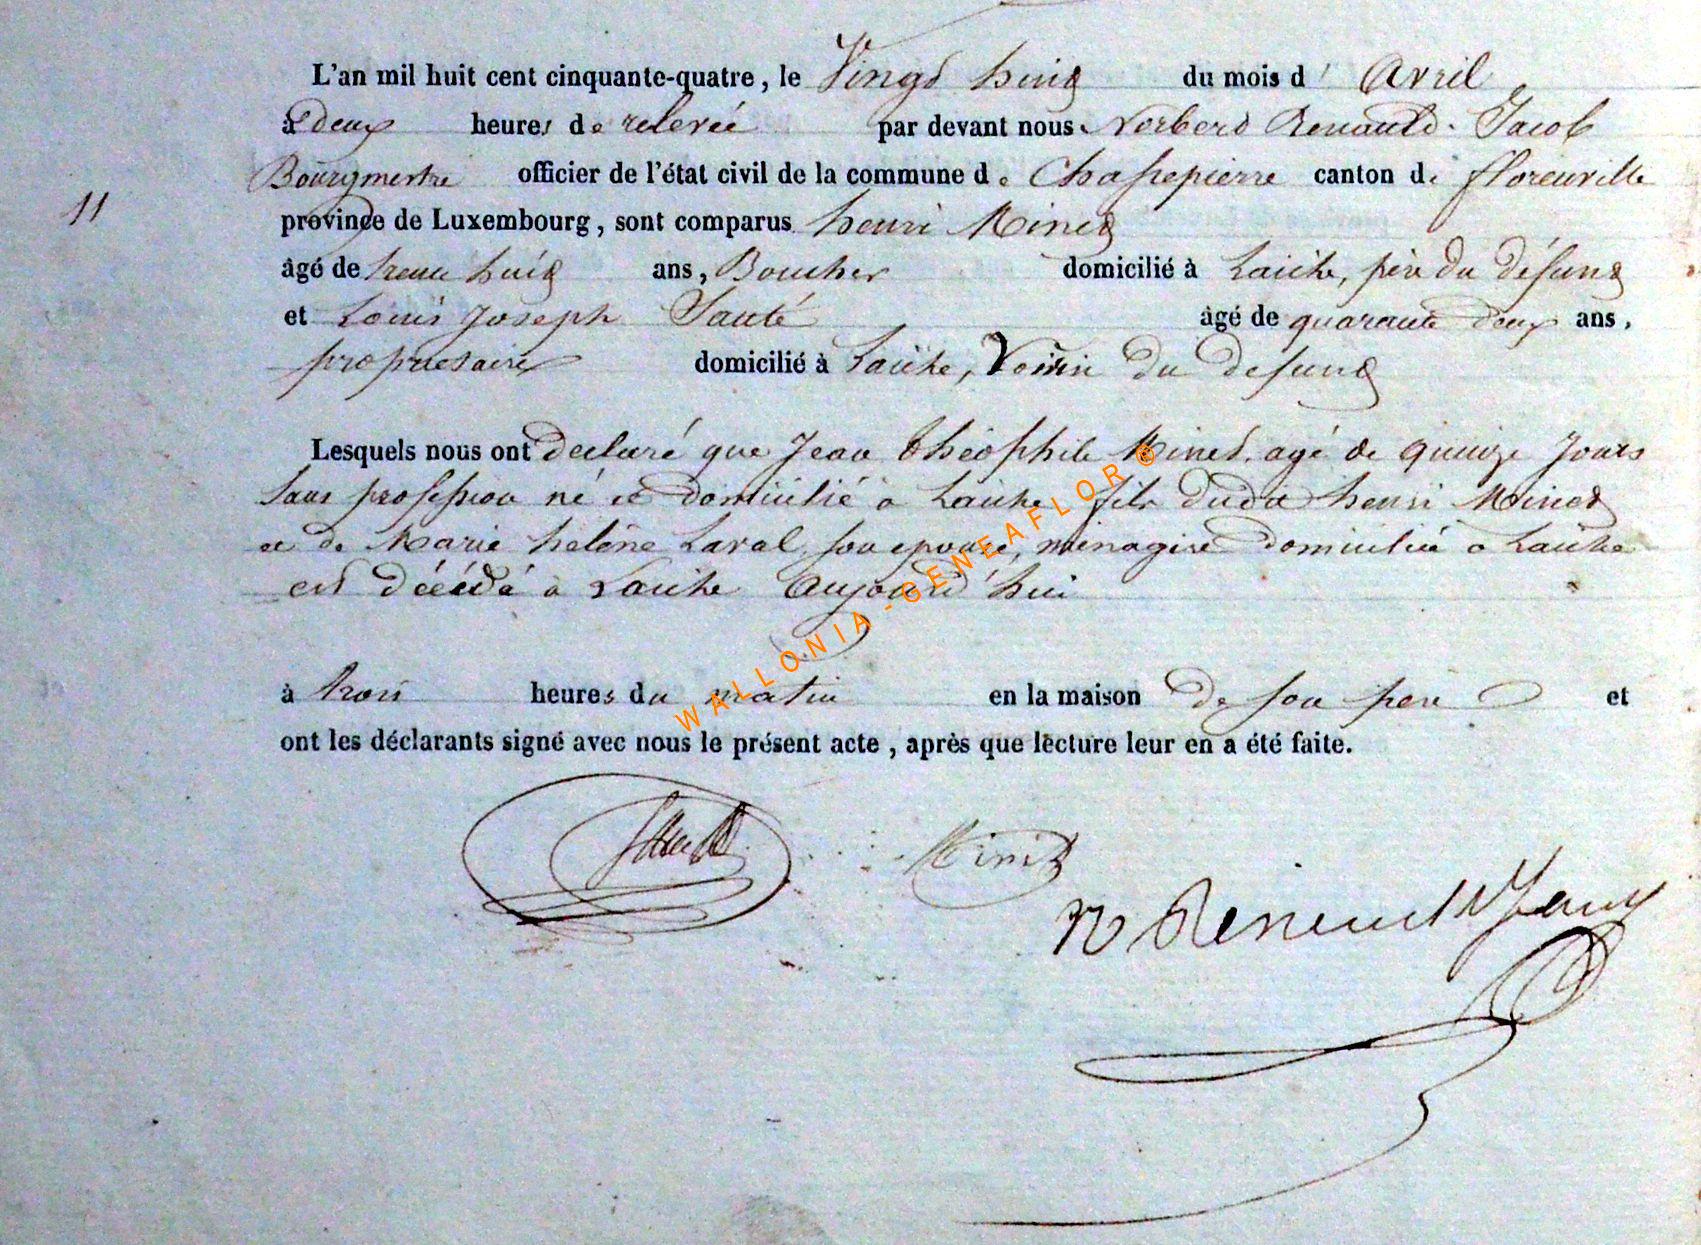 L'an mil huit cent cinquante-quatre, le Vingt huit du mois d' Avril
à deux heures de relevée par devant nous Norbert Renauld. Jacob
Bourgmestre officier de l'état civil de la commune de Chassepierre canton de florenville
11
province de Luxembourg, sont comparus henri Minet
âgé de trente huit ans, Boucher domicilié à Laiche, père du défunt
et Louis Joseph Sauté âgé de quarante deux ans,
propriétaire domicilié à Laiche, Voisin du defunt
Lesquels nous ont declaré que Jean théophile Minet, agé de quinze Jours
Sans profession né et Domicilié a Laiche fils dudit henri Minet
et de Marie heléne Laval, son epouse, ménagère domiciliée a Laiche
est décédé à Laiche aujourd'hui
à trois heures du matin en la maison de son père et
ont les déclarants signé avec nous le présent acte, après que lecture leur en a été faite.
Minet
WALLONIA-GENEAFLOR ©